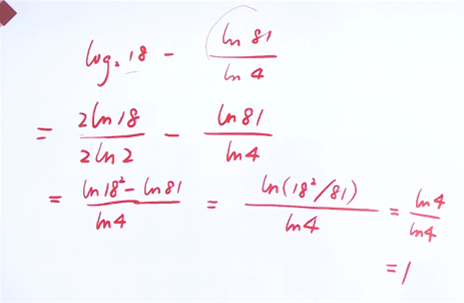 log₂ 18 - ln 81 / ln 4
= 2 ln 18 / 2 ln 2 - ln 81 / ln 4
= ln 18² - ln 81 / ln 4 = ln (18² / 81) / ln 4 = ln 4 / ln 4
= 1